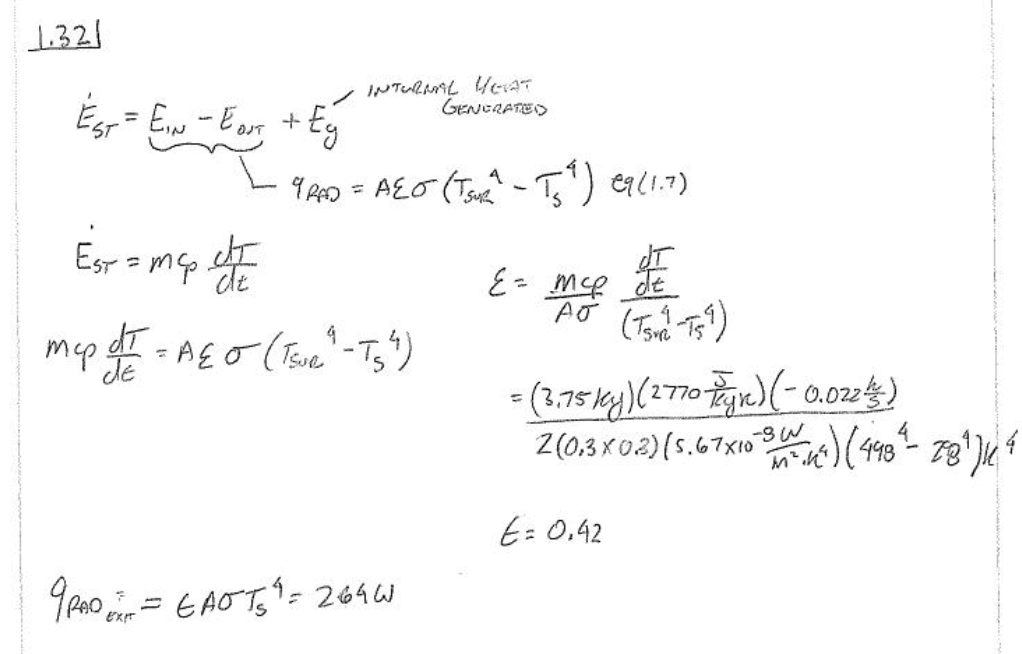 1.32
Ė_ST = E_IN - E_OUT + E_g
INTERNAL HEAT
GENERATED
q_RAD = AεσT(T_SUR^4 - T_S^4) eq(1.7)
Ė_ST = mcp dT/dt
mcp dT/dt = Aεσ(T_SUR^4 - T_S^4)
ε = mcp/Aσ (dT/dt)/(T_SUR^4 - T_S^4)
= (3.75 kg)(2770 J/kgK)(-0.022 k/s) / 2(0.3 x 0.3)(5.67x10^-8 W/m²·k⁴)(498^4 - 28^4)k^4
ε = 0.42
q_RAD EXIT = εAσT_S^4 = 264 W